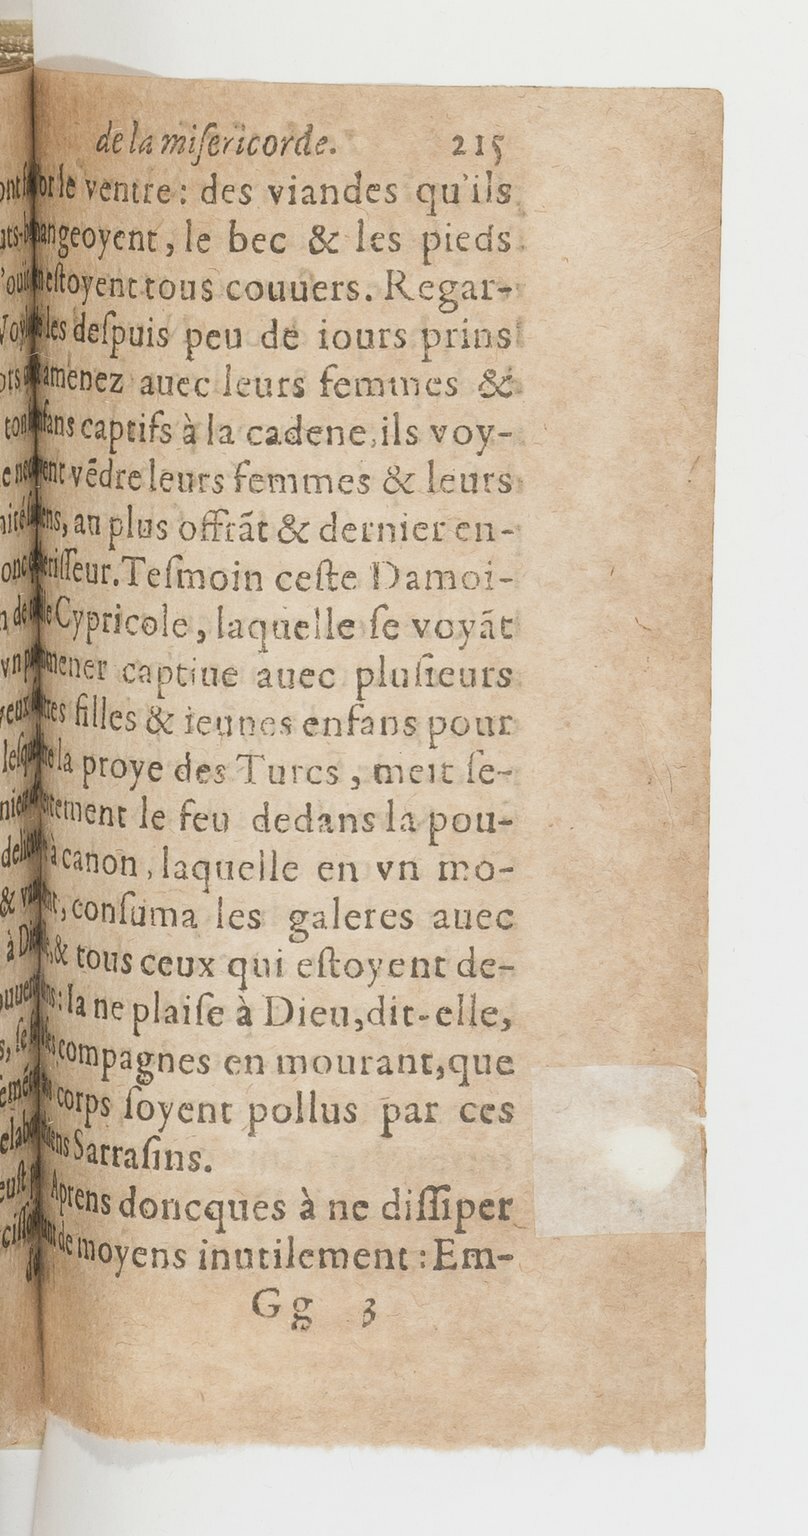 de la miſericorde. 215
ventre: des viandes qu'ils
geoyent, le bec & les pieds
eſtoyent tous couuers. Regar-
les deſpuis peu de iours prins
amenez auec leurs femmes &
fans captifs à la cadene, ils voy-
ent vēdre leurs femmes & leurs
au plus offrāt & dernier en-
riſſeur. Teſmoin ceſte Damoi-
Cypricole, laquelle ſe voyāt
mener captiue auec pluſieurs
filles & ieunes enfans pour
la proye des Turcs, meit ſe-
tement le feu dedans la pou-
à canon, laquelle en vn mo-
conſuma les galeres auec
& tous ceux qui eſtoyent de-
: Ia ne plaiſe à Dieu, dit-elle,
compagnes en mourant, que
corps ſoyent pollus par ces
Sarraſins.
Aprens doncques à ne diſſiper
de moyens inutilement: Em-
Gg 3